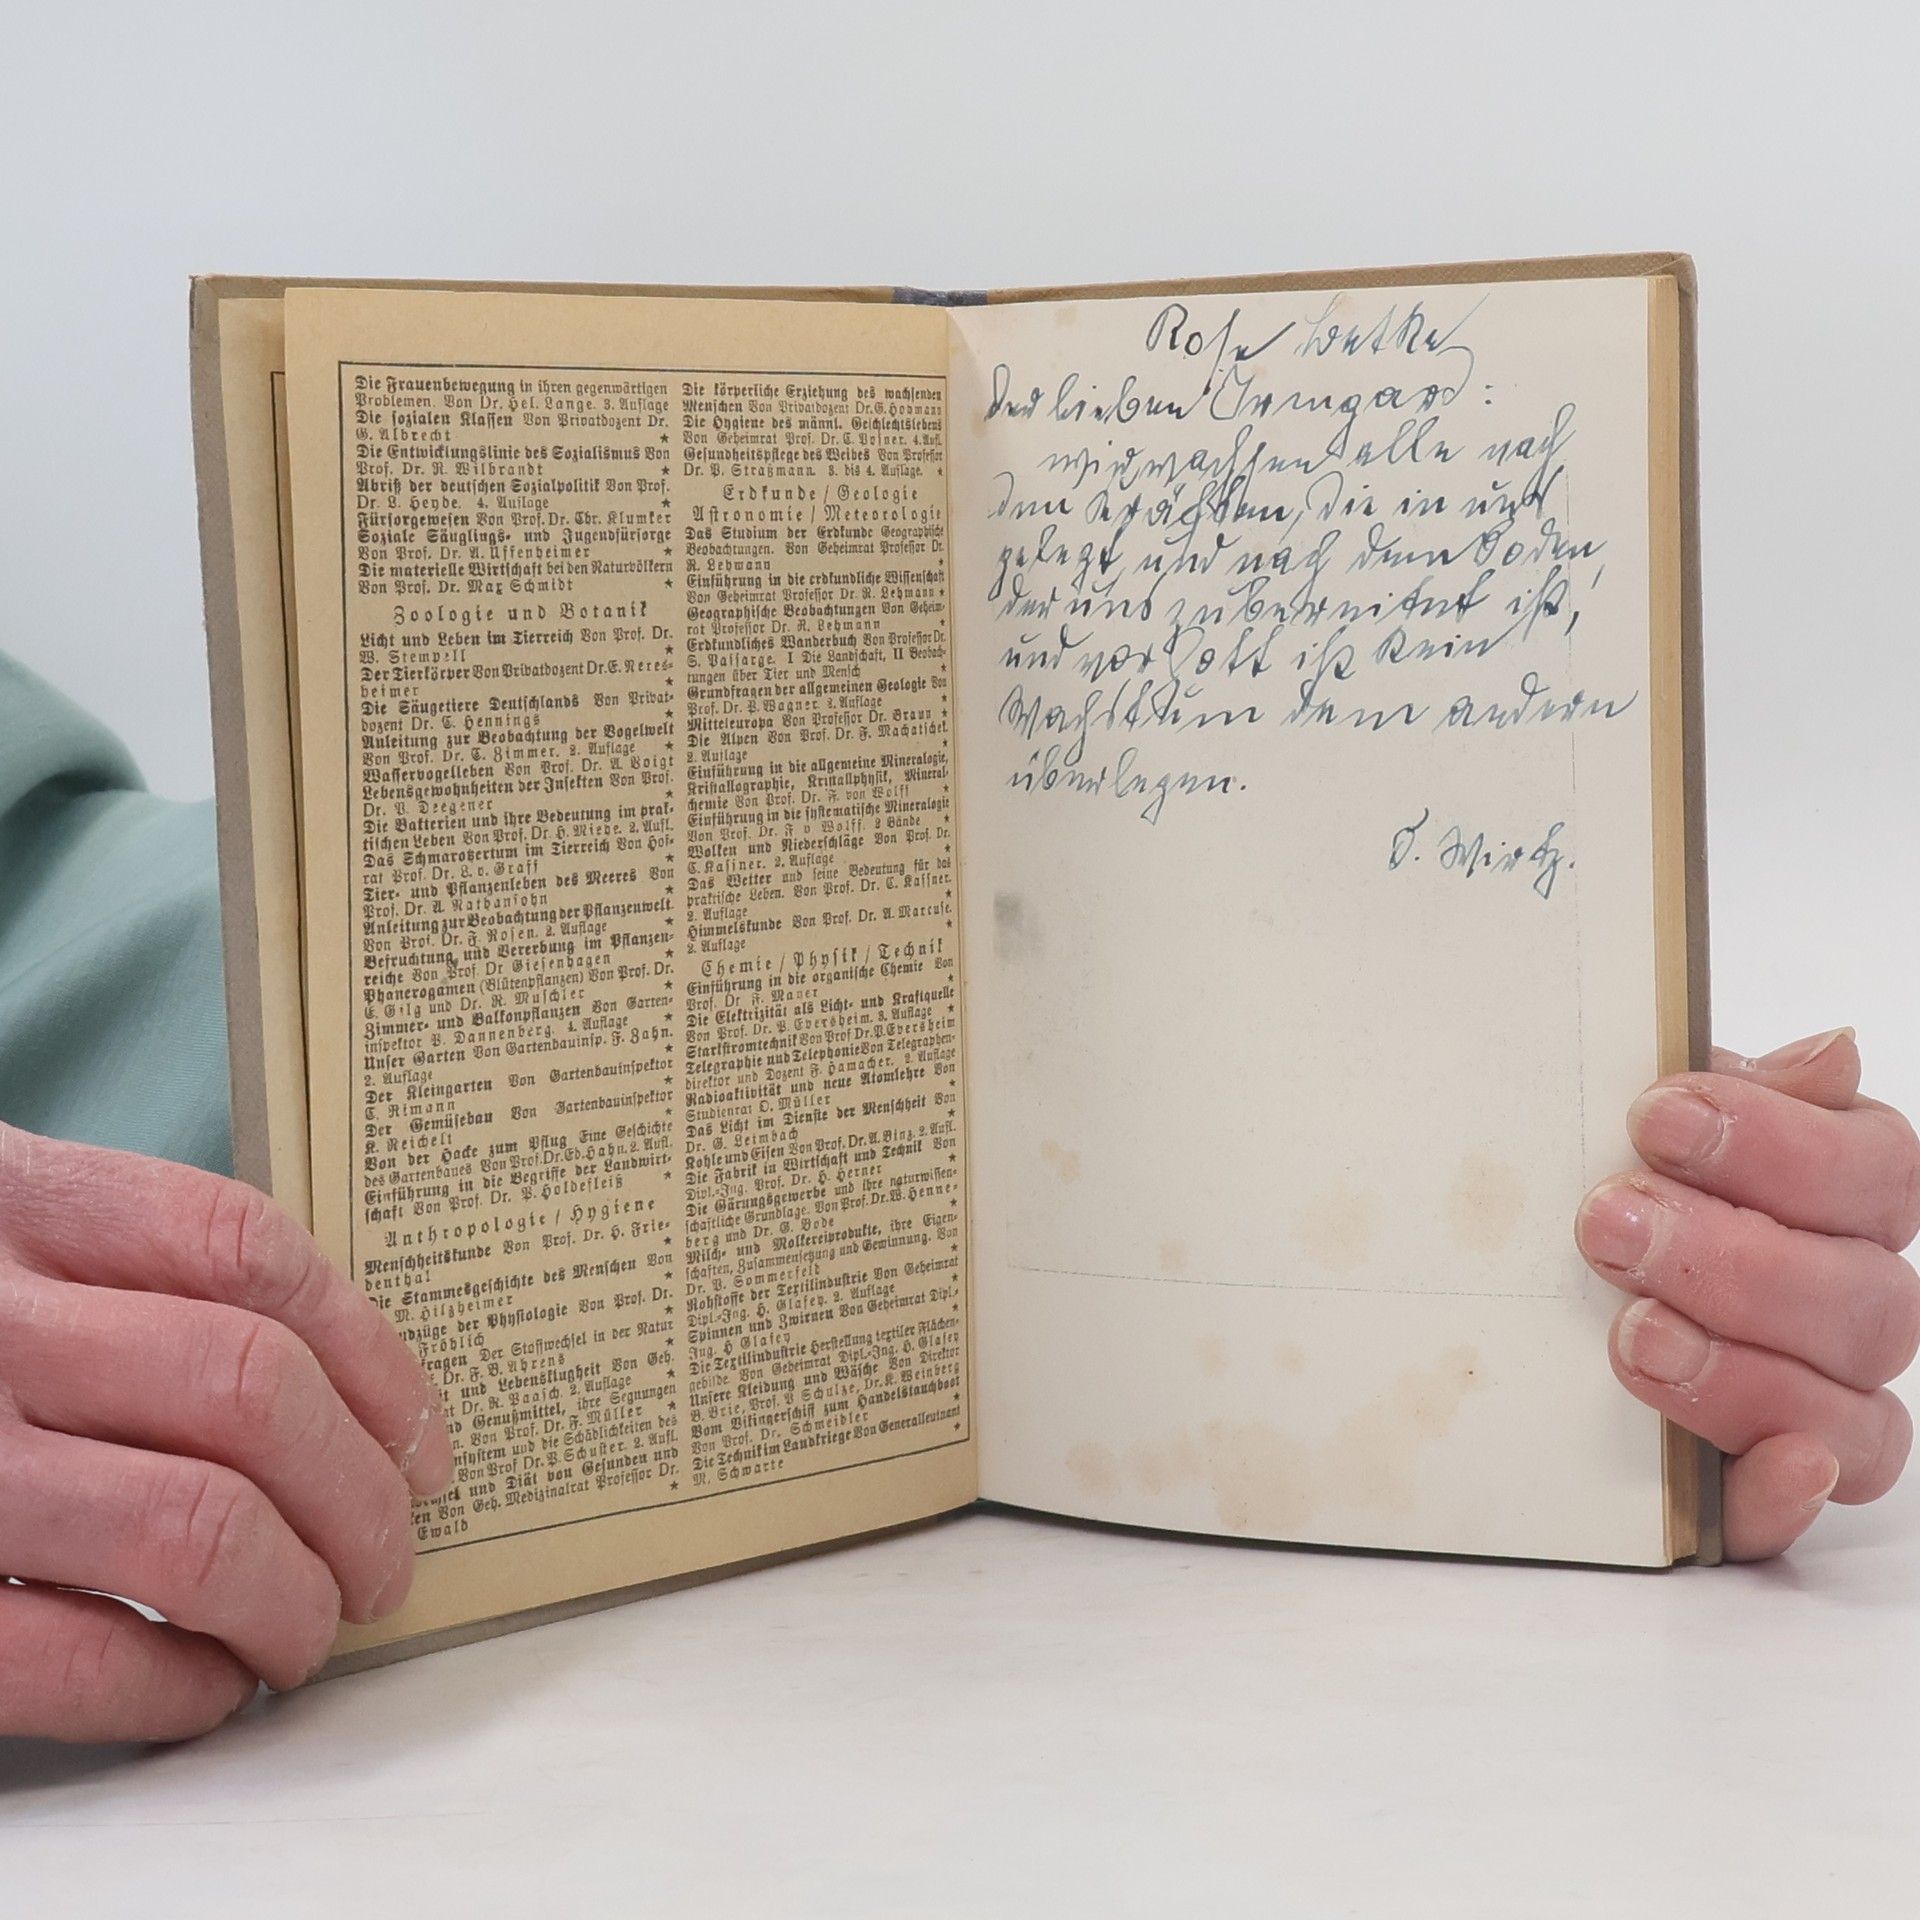 Die Frauenbewegung in ihren gegenwärtigen
Problemen. Von Dr. Hel. Lange. 3. Auflage
Die sozialen Klassen Von Privatdozent Dr.
G. Albrecht ★
Die Entwicklungslinie des Sozialismus Von
Prof. Dr. R. Wilbrandt ★
Abriß der deutschen Sozialpolitik Von Prof.
Dr. L. Heyde. 4. Auflage ★
Fürsorgewesen Von Prof. Dr. Chr. Klumker
Soziale Säuglings- und Jugendfürsorge
Von Prof. Dr. A. Uffenheimer ★
Die materielle Wirtschaft bei den Naturvölkern
Von Prof. Dr. Max Schmidt ★
Zoologie und Botanik
Licht und Leben im Tierreich Von Prof. Dr.
W. Stempell ★
Der Tierkörper Von Privatdozent Dr. E. Neres-
heimer ★
Die Säugetiere Deutschlands Von Privat-
dozent Dr. C. Hennings ★
Anleitung zur Beobachtung der Vogelwelt
Von Prof. Dr. C. Zimmer. 2. Auflage ★
Wasservogelleben Von Prof. Dr. A. Voigt
Lebensgewohnheiten der Insekten Von Prof.
Dr. P. Deegener ★
Die Bakterien und ihre Bedeutung im prak-
tischen Leben Von Prof. Dr. H. Miehe. 2. Aufl.
Das Schmarotzertum im Tierreich Von Hof-
rat Prof. Dr. L. v. Graff ★
Tier- und Pflanzenleben des Meeres Von
Prof. Dr. A. Nathansohn ★
Anleitung zur Beobachtung der Pflanzenwelt
Von Prof. Dr. F. Rosen. 2. Auflage ★
Befruchtung und Vererbung im Pflanzen-
reiche Von Prof. Dr Giesenhagen ★
Phanerogamen (Blütenpflanzen) Von Prof. Dr.
E. Gilg und Dr. R. Muschler ★
Zimmer- und Balkonpflanzen Von Garten-
inspektor P. Dannenberg. 4. Auflage ★
Unser Garten Von Gartenbauinsp. F. Zahn.
2. Auflage ★
Der Kleingarten Von Gartenbauinspektor
C. Rimann ★
Der Gemüsebau Von Gartenbauinspektor
K. Reichelt ★
Von der Hacke zum Pflug Eine Geschichte
des Gartenbaues Von Prof. Dr. Ed. Hahn. 2. Aufl.
Einführung in die Begriffe der Landwirt-
schaft Von Prof. Dr. P. Holdefleiß ★
Anthropologie / Hygiene
Menschheitskunde Von Prof. Dr. H. Frie-
denthal ★
Die Stammesgeschichte des Menschen Von
M. Hilzheimer ★
udzüge der Physiologie Von Prof. Dr.
Fröhlich ★
fragen Der Stoffwechsel in der Natur
Dr. F. B. Ahrens ★
it und Lebensklugheit Von Geh.
nt Dr. R. Paasch. 2. Auflage ★
nd Genußmittel, ihre Segnungen
n. Von Prof. Dr. F. Müller ★
nsystem und die Schädlichkeiten des
Von Prof Dr. P. Schuster. 2. Aufl.
sel und Diät von Gesunden und
ken Von Geh. Medizinalrat Professor Dr.
Ewald ★
Die körperliche Erziehung des wachsenden
Menschen Von Privatdozent Dr. G. Hohmann
Die Hygiene des männl. Geschlechtslebens
Von Geheimrat Prof. Dr. C. Posner. 4. Aufl.
Gesundheitspflege des Weibes Von Professor
Dr. P. Straßmann. 3. bis 4. Auflage. ★
Erdkunde / Geologie
Astronomie / Meteorologie
Das Studium der Erdkunde Geographische
Beobachtungen. Von Geheimrat Professor Dr.
R. Lehmann ★
Einführung in die erdkundliche Wissenschaft
Von Geheimrat Professor Dr. R. Lehmann ★
Geographische Beobachtungen Von Geheim-
rat Professor Dr. R. Lehmann ★
Erdkundliches Wanderbuch Von Professor Dr.
S. Passarge. I Die Landschaft, II Beobach-
tungen über Tier und Mensch ★
Grundfragen der allgemeinen Geologie Von
Prof. Dr. P. Wagner. 2. Auflage ★
Mitteleuropa Von Professor Dr. Braun ★
Die Alpen Von Prof. Dr. F. Machatschek.
2. Auflage ★
Einführung in die allgemeine Mineralogie,
Kristallographie, Kristallphysik, Mineral-
chemie Von Prof. Dr. F. von Wolff ★
Einführung in die systematische Mineralogie
Von Prof. Dr. F v Wolff. 2 Bände ★
Wolken und Niederschläge Von Prof. Dr.
C. Kassner. 2. Auflage ★
Das Wetter und seine Bedeutung für das
praktische Leben. Von Prof. Dr. C. Kassner.
2. Auflage ★
Himmelskunde Von Prof. Dr. A. Marcuse.
2. Auflage ★
Chemie / Physik / Technik
Einführung in die organische Chemie Von
Prof. Dr F. Mayer ★
Die Elektrizität als Licht- und Kraftquelle
Von Prof. Dr. P. Eversheim. 3. Auflage ★
Starkstromtechnik Von Prof Dr. P. Eversheim
Telegraphie und Telephonie Von Telegraphen-
direktor und Dozent F. Hamacher. 2. Auflage
Radioaktivität und neue Atomlehre Von
Studienrat O. Müller ★
Das Licht im Dienste der Menschheit Von
Dr. G. Leimbach ★
Kohle und Eisen Von Prof. Dr. A. Binz. 2. Aufl.
Die Fabrik in Wirtschaft und Technik Von
Dipl.-Ing. Prof. Dr. H. Herner ★
Die Gärungsgewerbe und ihre naturwissen-
schaftliche Grundlage. Von Prof. Dr. W. Henne-
berg und Dr. G. Bode ★
Milch- und Molkereiprodukte, ihre Eigen-
schaften, Zusammensetzung und Gewinnung. Von
Dr. P. Sommerfeld ★
Rohstoffe der Textilindustrie Von Geheimrat
Dipl.-Ing. H. Glafey. 2. Auflage ★
Spinnen und Zwirnen Von Geheimrat Dipl.-
Ing. H Glafey ★
Die Textilindustrie Herstellung textiler Flächen-
gebilde Von Geheimrat Dipl.-Ing. H. Glafey
Unsere Kleidung und Wäsche Von Direktor
B. Brie, Prof. P Schulze, Dr. K. Weinberg
Vom Wikingerschiff zum Handelstauchboot
Von Prof. Dr. Schmeidler ★
Die Technik im Landkriege Von Generalleutnant
M. Schwarte ★
Rose Wetke
Der lieben Irmgard:
wir wachsen alle nach
den Kräften, die in uns
gelegt, und nach dem Boden,
der uns zubereitet ist,
und vor Gott ist kein
Wachstum dem andern
überlegen.
T. Wirtz.